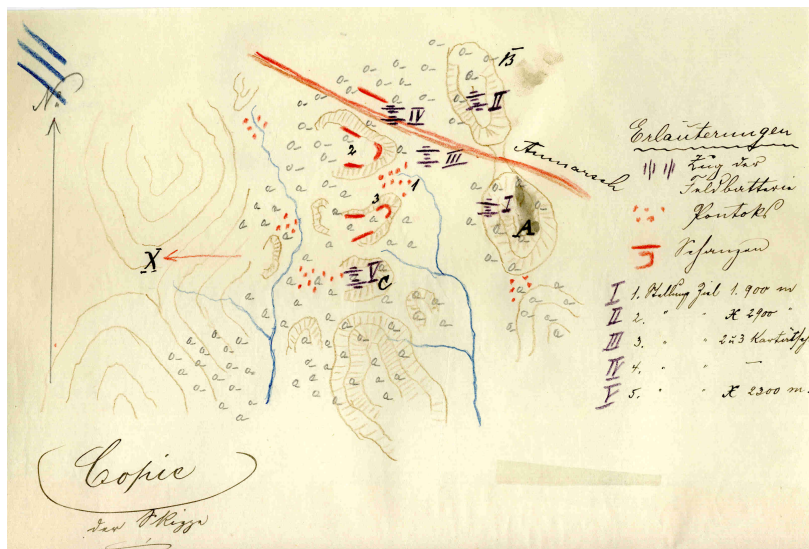 N.
B
II
IV
2
III
1
Anmarsch
I
3
A
X
V
C
Erläuterungen
Zug der
Feldbatterie
Pontoks
Schanzen
I 1. Stellung Ziel 1. 900 m
II 2. " " X 2900 "
III 3. " " 2 u 3 Kartätsch
IV 4. " " —
V 5. " " X 2300 m.
Copie
der Skizze